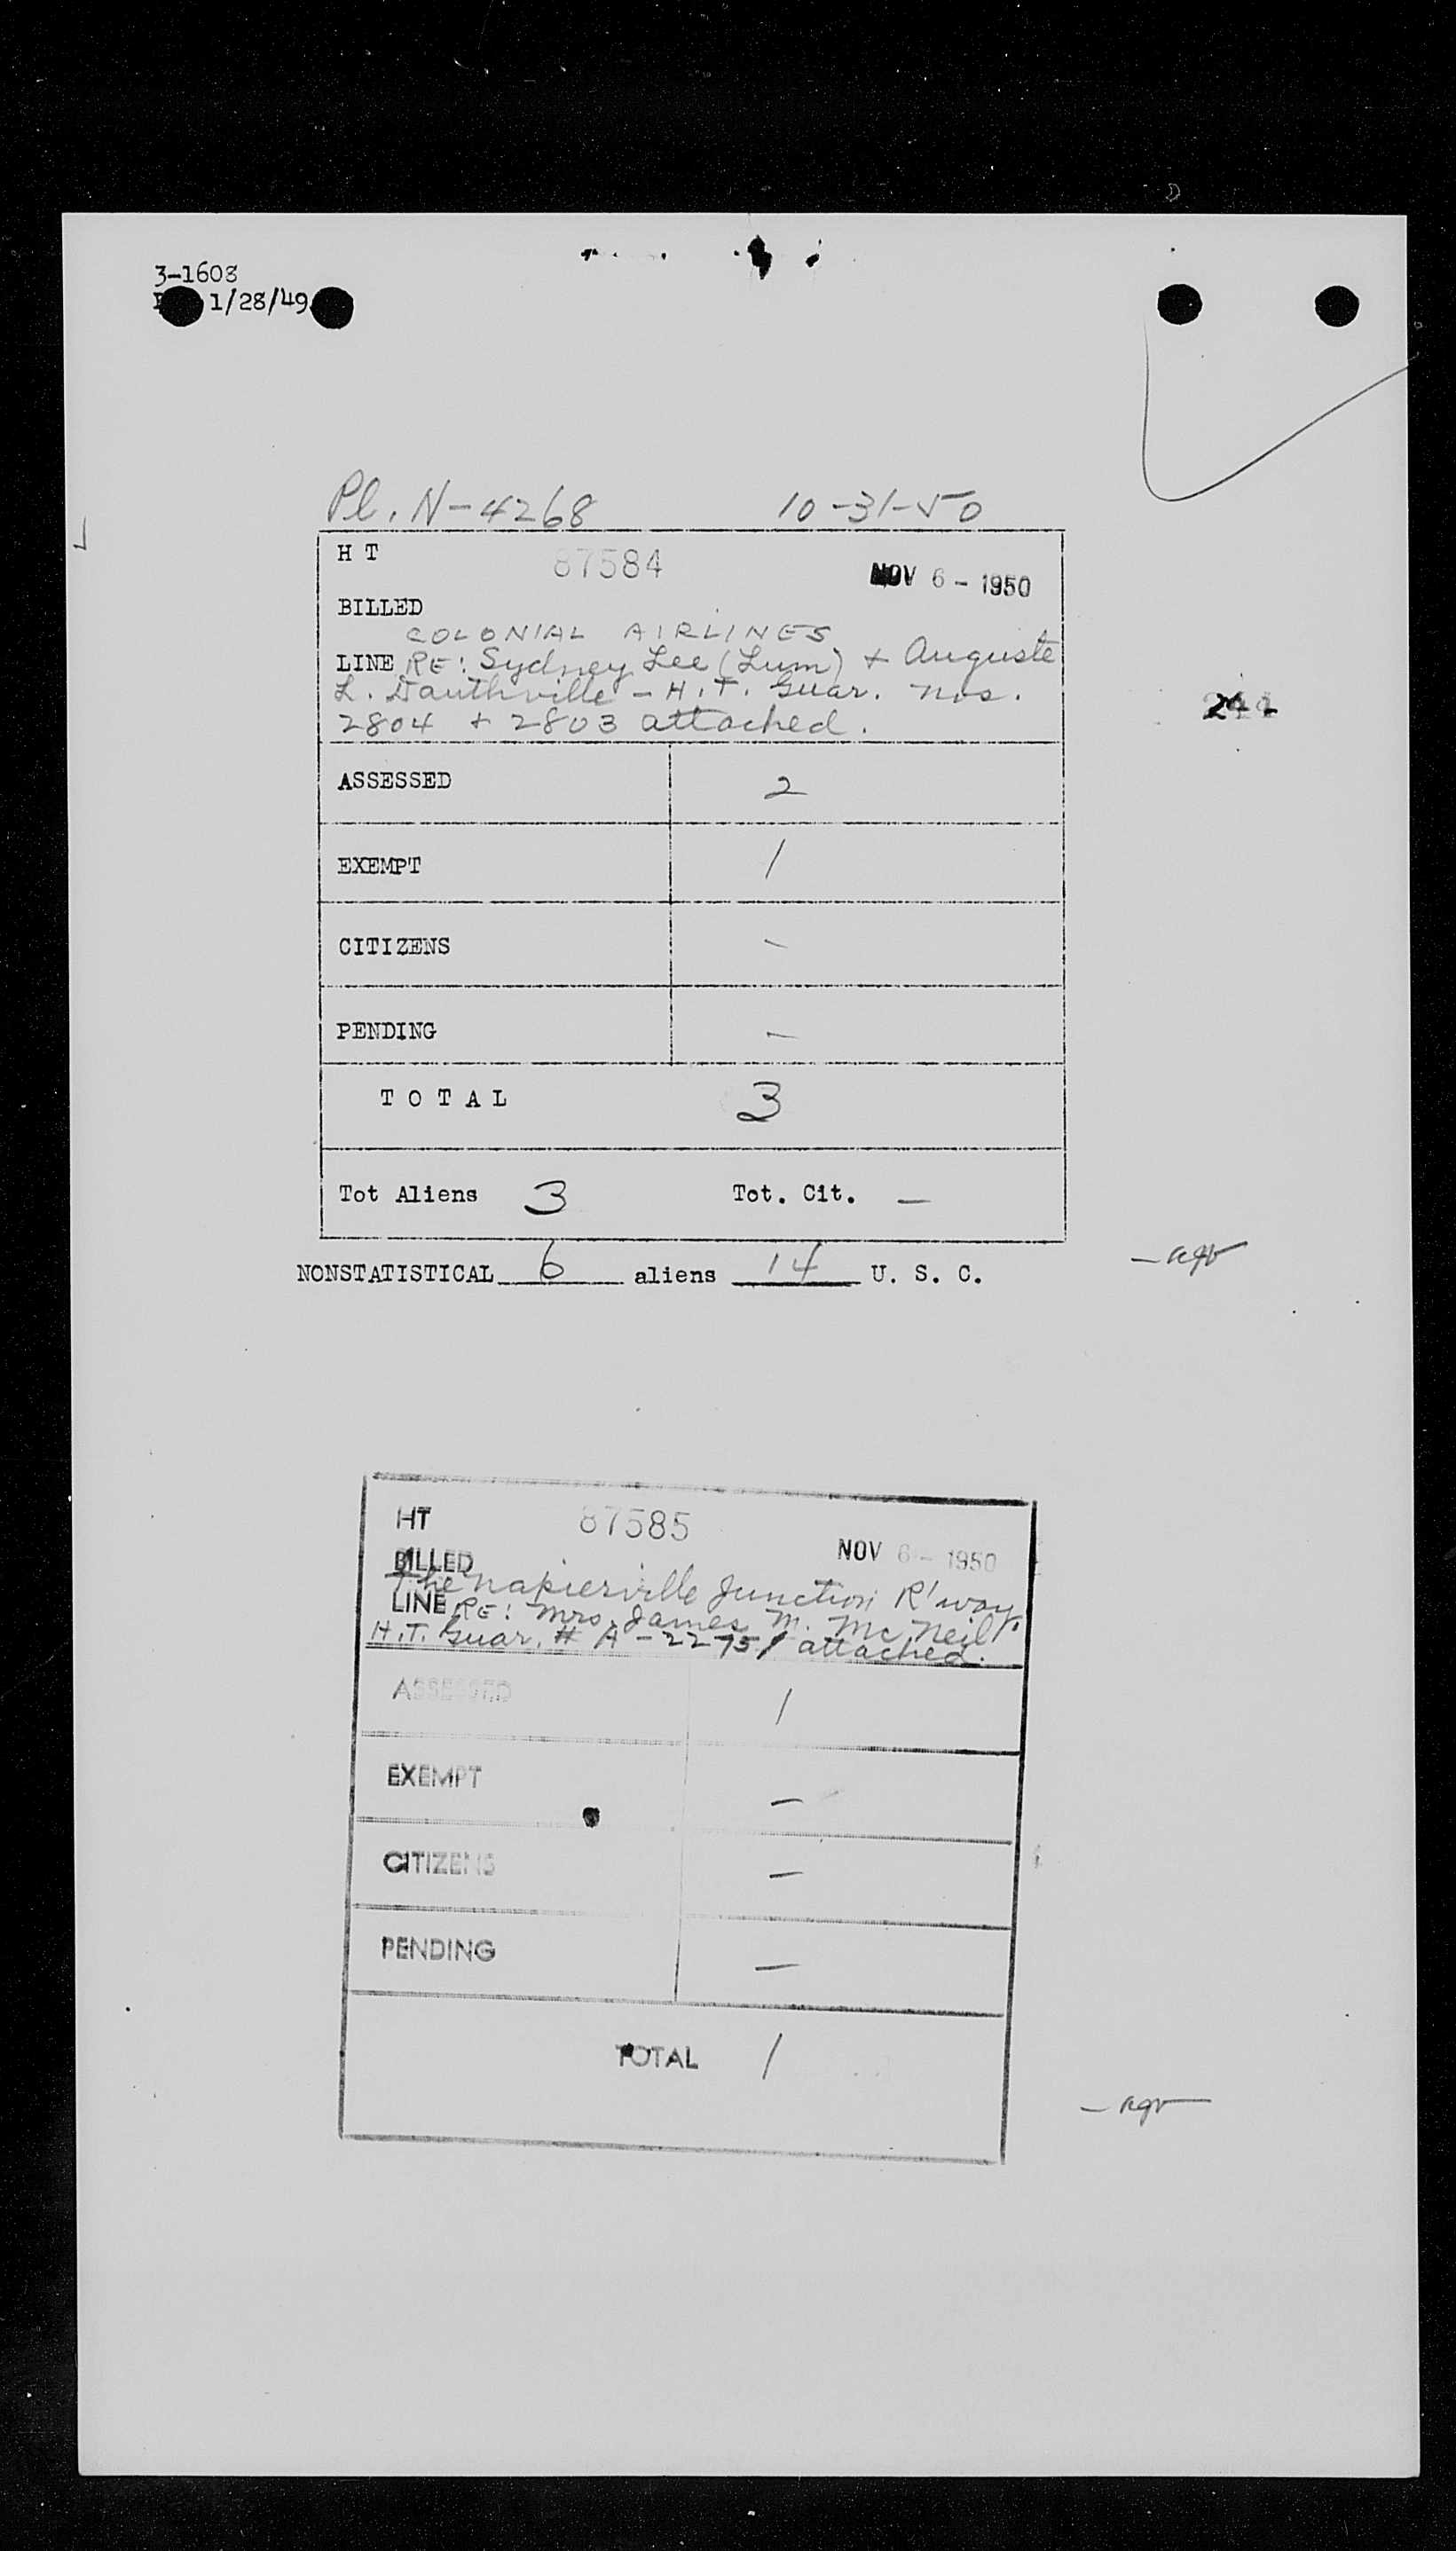 3-1608
1/28/49
Pl. N-4268 10-31-50
H T 87584 NOV 6 - 1950
BILLED
COLONIAL AIRLINES
LINE RE: Sydney Lee (Lum) + Auguste
L. Dauthville - H.T. Guar. nos.
2804 + 2803 attached.
ASSESSED 2
EXEMPT 1
CITIZENS –
PENDING –
T O T A L 3
Tot Aliens 3 Tot. Cit. –
NONSTATISTICAL 6 aliens 14 U. S. C.
HT 87585 NOV 6 - 1950
BILLED
The Napierville Junction R'way
LINE RE: Mrs. James M. McNeil
H.T. Guar. # A-22751 attached.
ASSESSED 1
EXEMPT –
CITIZENS –
PENDING –
TOTAL 1